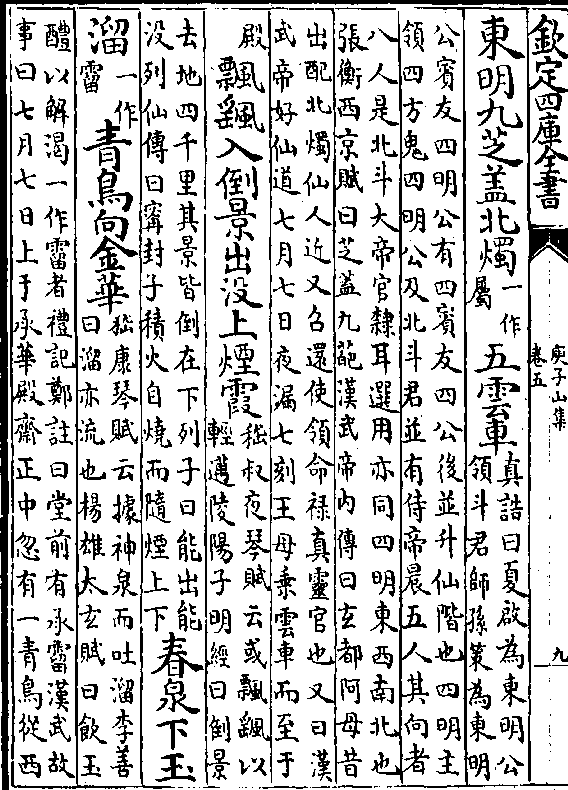 欽定四庫全書
庾子山集
卷五
九
東明九芝蓋北燭
一作
屬
五雲車
真誥曰夏啟為東明公
領斗君師孫策為東明
公賓友四明公有四賓友四公後並升仙階也四明主
領四方鬼四明公及北斗君並有侍帝晨五人其向者
八人是北斗大帝官隸耳選用亦同四明東西南北也
張衡西京賦曰芝蓋九葩漢武帝内傳曰玄都阿母昔
出配北燭仙人近又召還使領命禄真靈官也又曰漢
武帝好仙道七月七日夜漏七刻王母乗雲車而至于
殿
飄颻入倒景出没上煙霞
嵇叔夜琴賦云或飄颻以
輕邁陵陽子明經曰倒景
去地四千里其景皆倒在下列子曰能出能
没列仙傳曰甯封子積火自燒而隨煙上下
春泉下玉
溜
一作
霤
青鳥向金華
嵇康琴賦云據神泉而吐溜李善
曰溜亦流也楊雄太玄賦曰飲玉
醴以解渴一作霤者禮記鄭註曰堂前有承霤漢武故
事曰七月七日上于承華殿齋正中忽有一青鳥從西